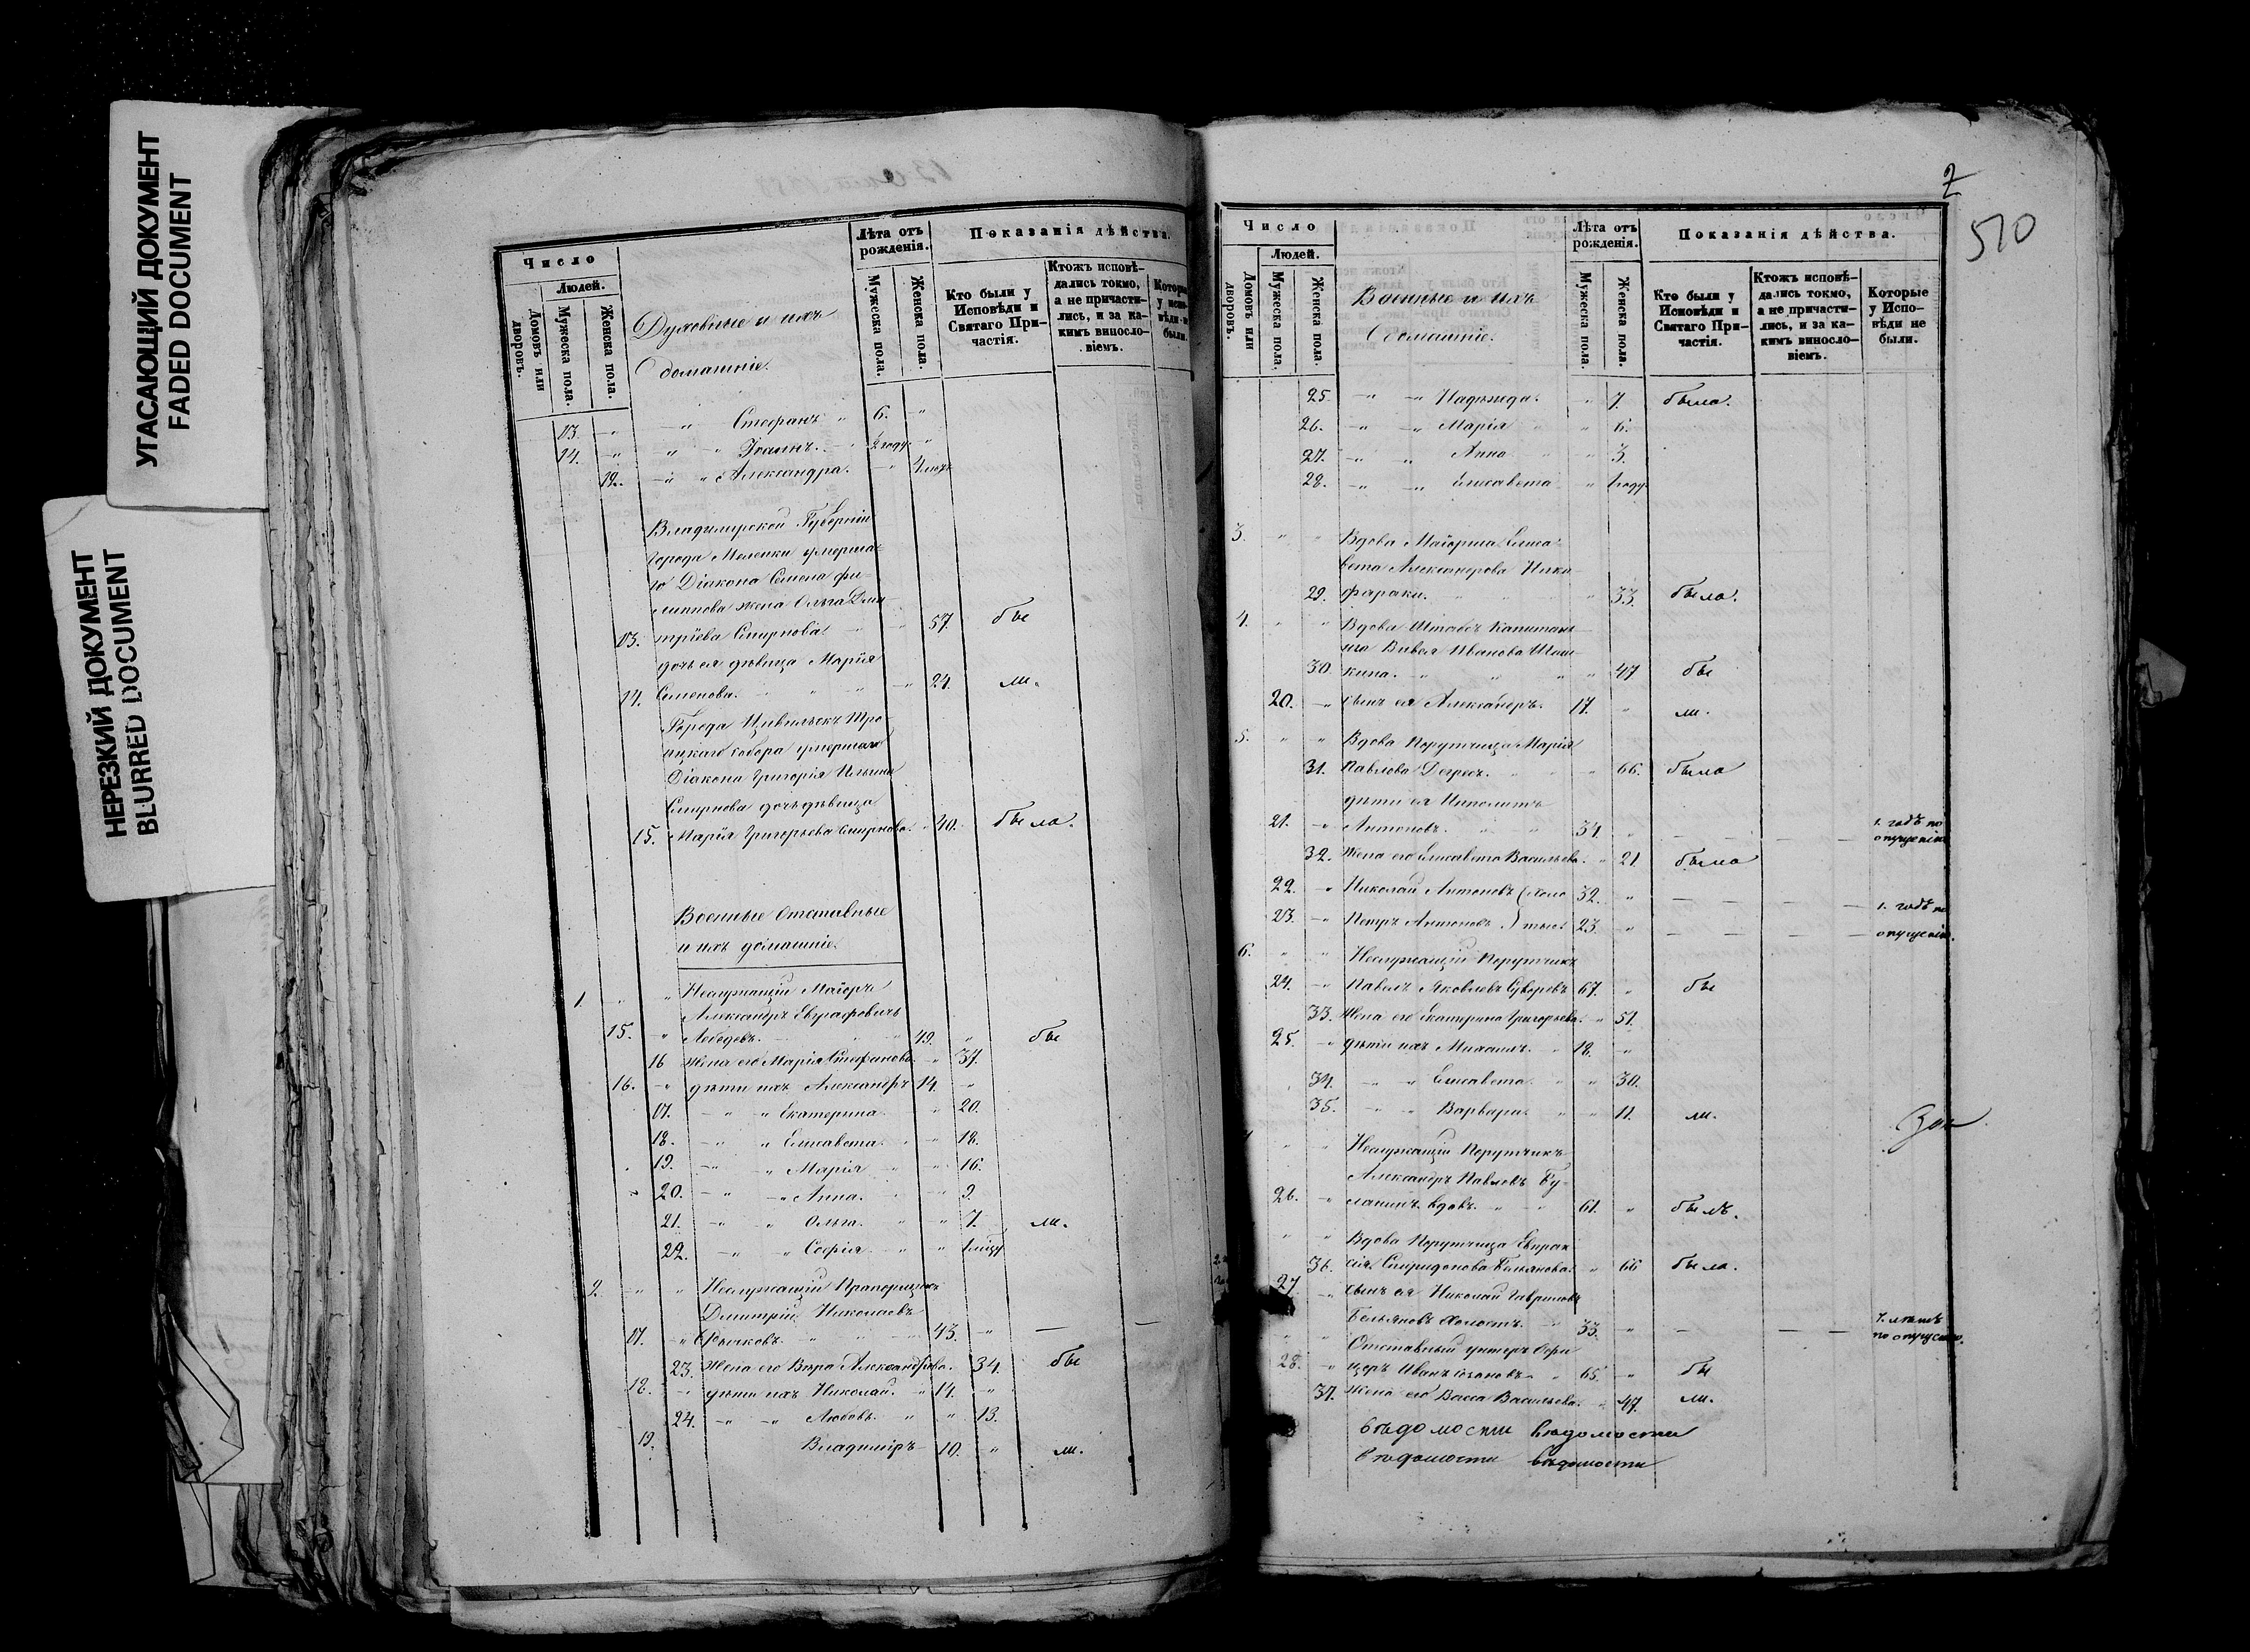 УГАСАЮЩИЙ ДОКУМЕНТ
FADED DOCUMENT
НЕРЕЗКИЙ ДОКУМЕНТ
BLURRED DOCUMENT
Число
Людей.
Домовъ или дворовъ.
Мужеска пола.
Женска пола.
Духовные и ихъ
домашніе.
Лѣта отъ рожденія.
Мужеска пола.
Женска пола.
Показанія дѣйства.
Кто были у Исповѣди и Святаго Причастія.
Ктожъ исповѣдались токмо, а не причастились, и за какимъ винословіемъ.
Которые у испо-вѣди не были.
13. — Стефанъ 6.
14. — Іоаннъ. ½ году
12. — Александра. 4
Владимирской Губерніи
города Меленки умерша-
го Діакона Семена Фи-
липпова жена Ольга Дми-
13. тріева Смирнова. 57. бы
дочь ея дѣвица Марія
14. Семенова. 24. ли.
Города Цивильскъ Тро-
ицкаго собора умершаго
Діакона Григорія Ильина
Смирнова дочь дѣвица
15. Марія Григорьева Смирнова. 40. была.
Военные Отставные
и ихъ домашніе.
1. Неслужащій Маіоръ
Александръ Евграфовичъ
15. Лебедевъ. 49. бы
16 Жена его Марія Стефанова. 37.
16. дѣти ихъ Александръ 14.
17. Екатерина. 20.
18. Елисавета. 18.
19. Марія 16.
20. Анна. 9.
21. Ольга. 7. ли.
22. Софія
2. Неслужащій Прапорщикъ
Дмитрій Николаевъ
17. 43.
23. Жена его Вѣра Александрова. 34. бы
18. дѣти ихъ Николай. 14.
24. Любовь. 13.
19. Владиміръ 10. ли.
2
510
Число
Людей.
Домовъ или дворовъ.
Мужеска пола.
Женска пола.
Военные и ихъ
домашніе.
Лѣта отъ рожденія.
Мужеска пола.
Женска пола.
Показанія дѣйства.
Кто были у Исповѣди и Святаго Причастія.
Ктожъ исповѣдались токмо, а не причастились, и за какимъ винословіемъ.
Которые у Исповѣди не были.
25. Надежда. 7. была.
26. Марія 6.
27. Анна 3.
28. Елисавета 1 году
3. Вдова Маіорша Елиса-
вета Александрова Ника-
29. фараки. 33. была.
4. Вдова Штабсъ Капитанъ
ша Вивея Иванова Шиш-
30. кина. 47 бы
20. сынъ ея Александръ. 17. ли.
5. Вдова Порутчица Марія
31. Павлова Дегресъ. 66. была
дѣти ея Ипполитъ
21. Антоновъ. 34. 1. годъ по опущенію
32. Жена его Елисавета Васильева. 21. была
22. Николай Антоновъ (холо 32. 1. годъ по
23. Петръ Антоновъ. ) тые. 23. опущенію.
6. Неслужащій Порутчикъ
24. Павелъ Яковлевъ Суворовъ 67. бы
33. Жена его Екатерина Григорьева. 51.
25. дѣти ихъ Михаилъ. 18.
34. Елисавета. 30.
35. Варвара. 11. ли.
Неслужащій Порутчикъ
Александръ Павловъ Бу-
26. ланинъ вдовъ. 61. былъ.
Вдова Порутчица Евпрак-
36. сія Спиридонова Бельянова. 66 была.
27. сынъ ея Николай Гавриловъ
Бельяновъ холостъ. 33. 7. лѣтъ по опущенію.
Отставный унтеръ Офи
28. церъ Иванъ 65. бы
37. Жена его Васса Васильева. 47. ли.
вѣдомости вѣдомости
вѣдомости вѣдомости